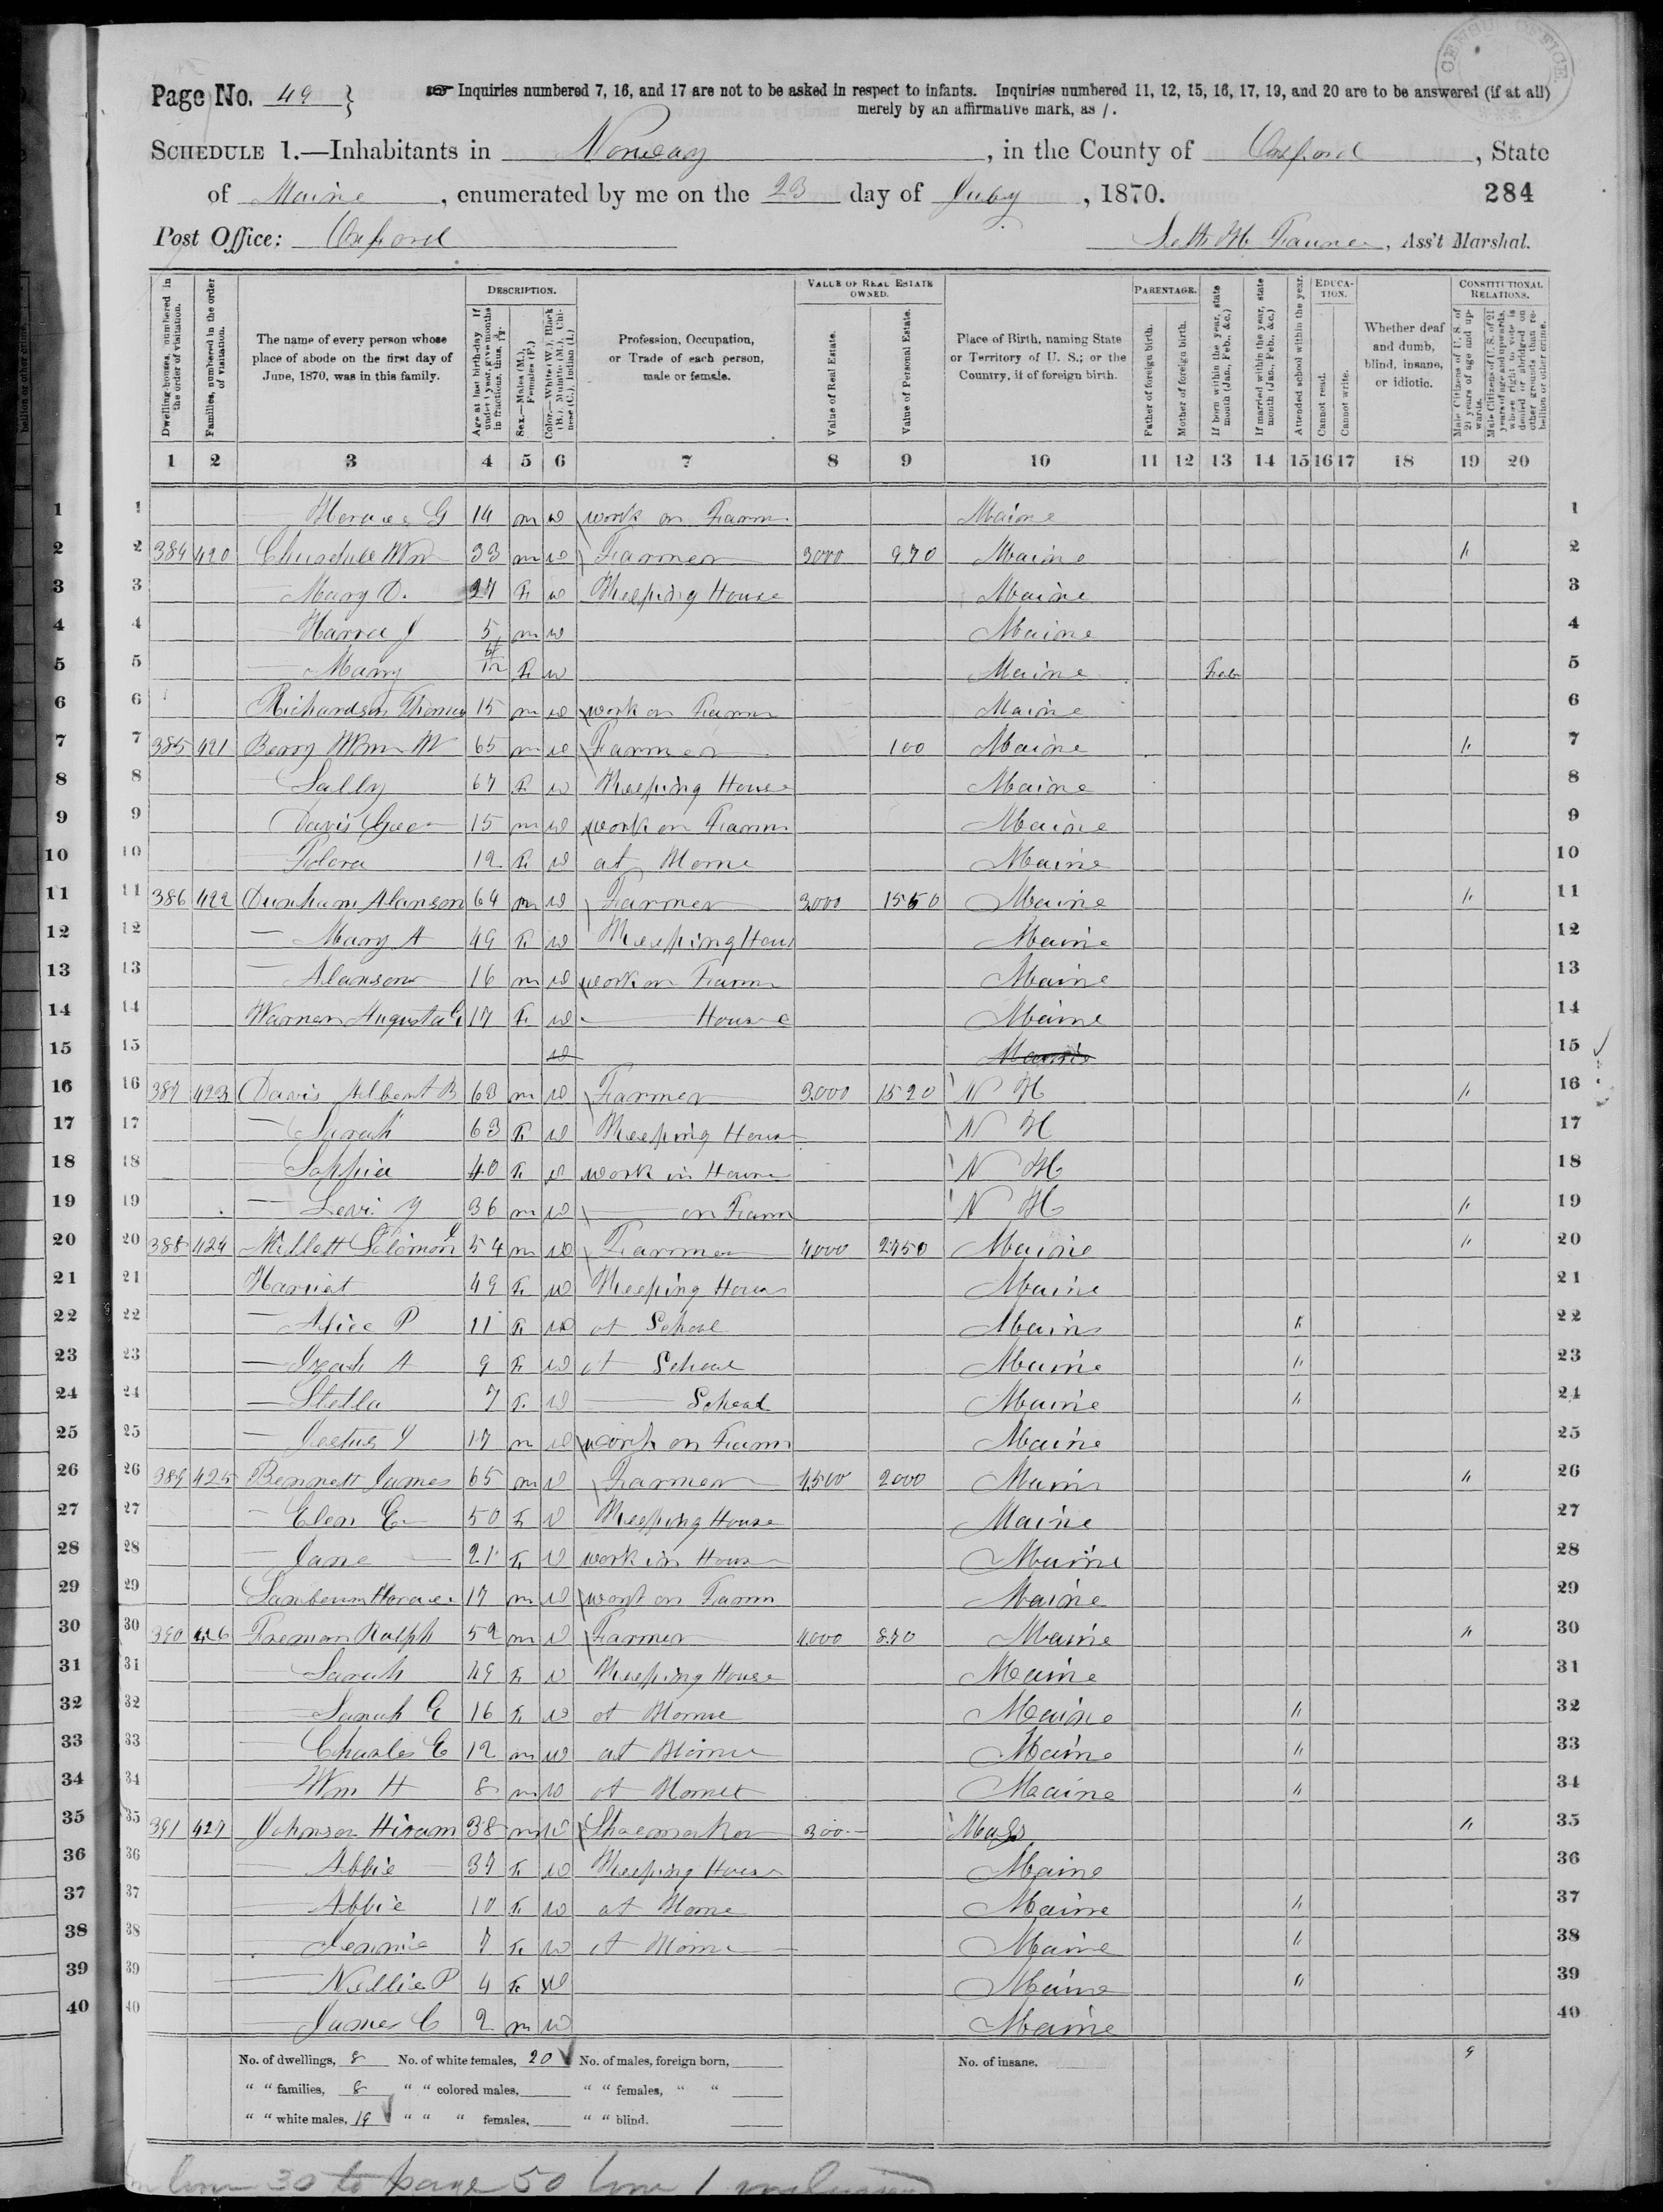 CENSUS OFFICE
Page No. 49 } Inquiries numbered 7, 16, and 17 are not to be asked in respect to infants. Inquiries numbered 11, 12, 15, 16, 17, 19, and 20 are to be answered (if at all)
merely by an affirmative mark, as /.
SCHEDULE 1.—Inhabitants in Norway, in the County of Oxford, State
of Maine, enumerated by me on the 23 day of July, 1870. 284
Post Office: Oxford Seth H Faunce, Ass't Marshal.
Dwelling-houses, numbered in the order of visitation.
Families, numbered in the order of visitation.
The name of every person whose place of abode on the first day of June, 1870, was in this family.
DESCRIPTION.
Age at last birth-day. If under 1 year, give months in fractions, thus,
Sex.—Males (M.), Females (F.)
Color.—White (W.), Black (B.), Mulatto (M.), Chinese (C.), Indian (I.)
Profession, Occupation, or Trade of each person, male or female.
VALUE OF REAL ESTATE OWNED.
Value of Real Estate.
Value of Personal Estate.
Place of Birth, naming State or Territory of U. S.; or the Country, if of foreign birth.
PARENTAGE.
Father of foreign birth.
Mother of foreign birth.
If born within the year, state month (Jan., Feb., &c.)
If married within the year, state month (Jan., Feb., &c.)
Attended school within the year.
EDUCATION.
Cannot read.
Cannot write.
Whether deaf and dumb, blind, insane, or idiotic.
CONSTITUTIONAL RELATIONS.
Male Citizens of U. S. of 21 years of age and upwards.
Male Citizens of U. S. of 21 years of age and upwards, where right to vote is denied or abridged on other grounds than rebellion or other crime.
1 2 3 4 5 6 7 8 9 10 11 12 13 14 15 16 17 18 19 20
1 — Horace G 14 m w work on Farm Maine 1
2 384 420 Churchill Wm 33 m w Farmer 3000 970 Maine " 2
3 — Mary O. 27 F w Keeping House Maine 3
4 — Harra J 5 m w Maine 4
5 — Mary F w Maine Feb 5
6 Richardson Thomas 15 m w work on Farm Maine 6
7 385 421 Berry Wm W 65 m w Farmer 100 Maine " 7
8 — Sally 67 F w Keeping House Maine 8
9 Davis Geo 15 m w work on Farm Maine 9
10 — 12 F w at Home Maine 10
11 386 422 Dunham Alanson 64 m w Farmer 3000 1550 Maine " 11
12 — Mary A 49 F w Keeping Hous Maine 12
13 — Alanson 16 m w work on Farm Maine 13
14 Warren Augusta 17 F w — House Maine 14
15 w Maine 15
16 387 423 Davis Albert B 68 m w Farmer 3000 1520 N H " 16
17 — Sarah 63 F w Keeping House N H 17
18 — Sophia 40 F w work in House N H 18
19 — Levi 36 m w — on Farm N H " 19
20 388 424 Millett Solomon J 54 m w Farmer 4000 2750 Maine " 20
21 Harriet 49 F w Keeping House Maine 21
22 — Alice P 11 F w at School Maine " 22
23 — A 9 F w at School Maine " 23
24 — Stella 7 F w — School Maine " 24
25 — 17 m w work on Farm Maine 25
26 389 425 Bennett James 65 m w Farmer 4500 2000 Maine " 26
27 — Elen E 50 F w Keeping House Maine 27
28 — Jane 21 F w work in House Maine 28
29 Horace 17 m w work on Farm Maine 29
30 390 426 Freman Ralph 52 m w Farmer 4000 870 Maine " 30
31 — Sarah 49 F w Keeping House Maine 31
32 — Sarah E 16 F w at Home Maine " 32
33 — Charles E 12 m w at Home Maine " 33
34 — Wm H 8 m w at Home Maine " 34
35 391 427 Johnson Hiram 38 m w Shoemaker 300 Mass " 35
36 — Abbie 37 F w Keeping House Maine 36
37 — Abbie 10 F w at Home Maine " 37
38 — Jennie 7 F w at Home Maine " 38
39 — Nellie P 4 F w Maine " 39
40 — James C 2 m w Maine 40
No. of dwellings, 8 No. of white females, 20 No. of males, foreign born, No. of insane, 9
" " families, 8 " " colored males, " " females, " "
" " white males, 19 " " " females, " " blind.
line 30 to page 50 line 1